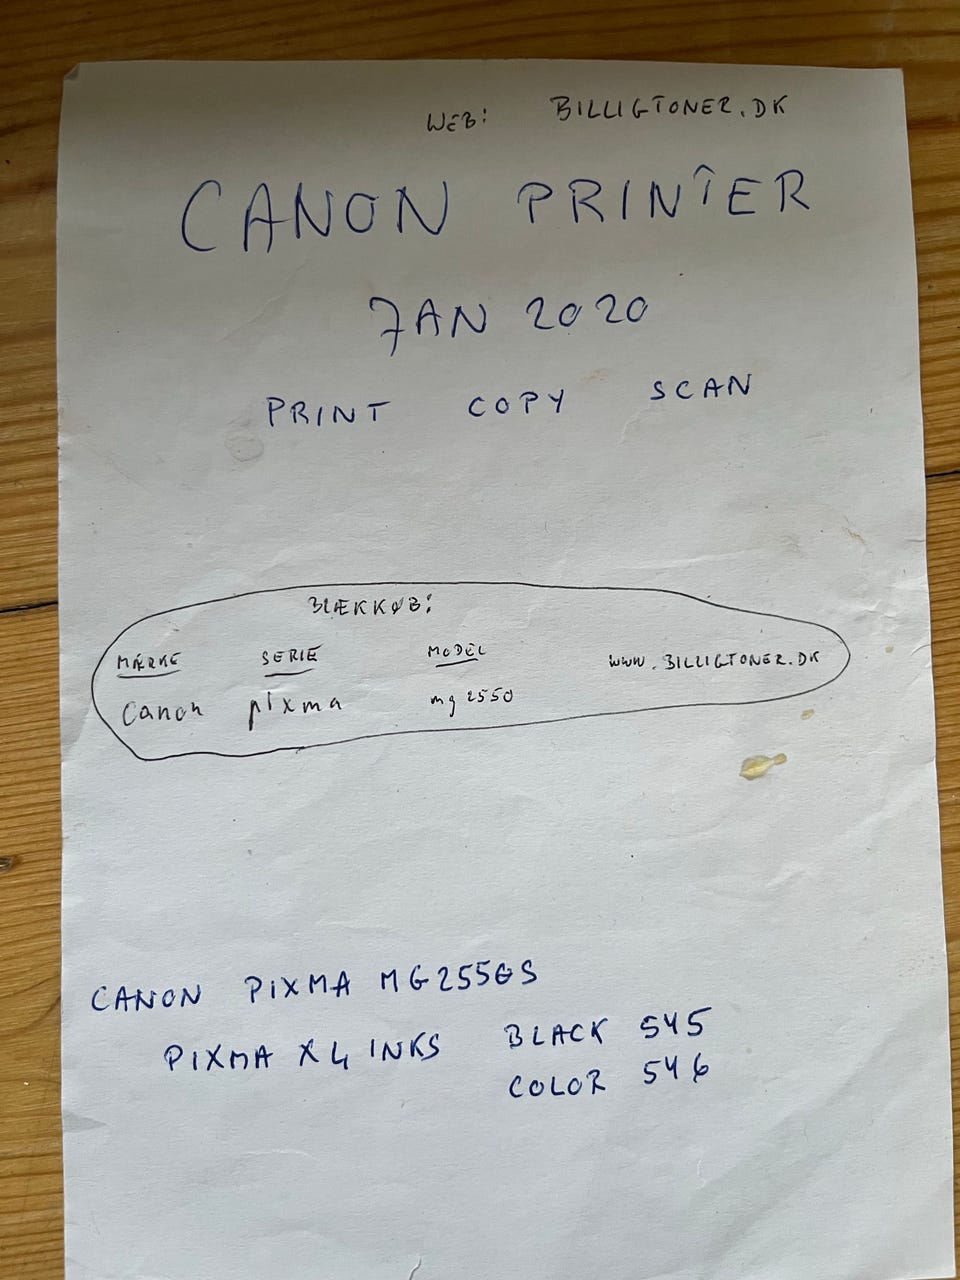 WEB: BILLIGTONER.DK
CANON PRINTER
JAN 2020
PRINT COPY SCAN
BLÆKKØB:
MÆRKE SERIE MODEL www.BILLIGTONER.DK
Canon pixma mg 2550
CANON PIXMA MG2550S
PIXMA X4 INKS BLACK 545
COLOR 546